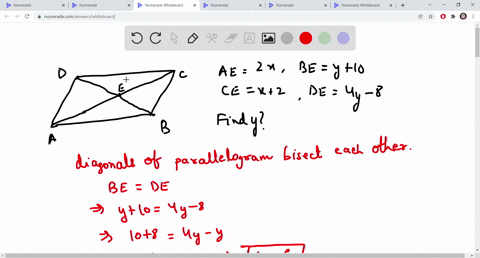 Numerade
Numerade
Numerade Whiteboard
Numerade Whiteboard
Numerade Whiteboard
Numerade
numerade.com/answers/whiteboard/
D
C
E
A
B
AE = 2x, BE = y+10
CE = x+2, DE = 4y-8
Find y?
diagonals of parallelogram bisect each other.
BE = DE
⇒ y+10 = 4y-8
⇒ 10+8 = 4y-y